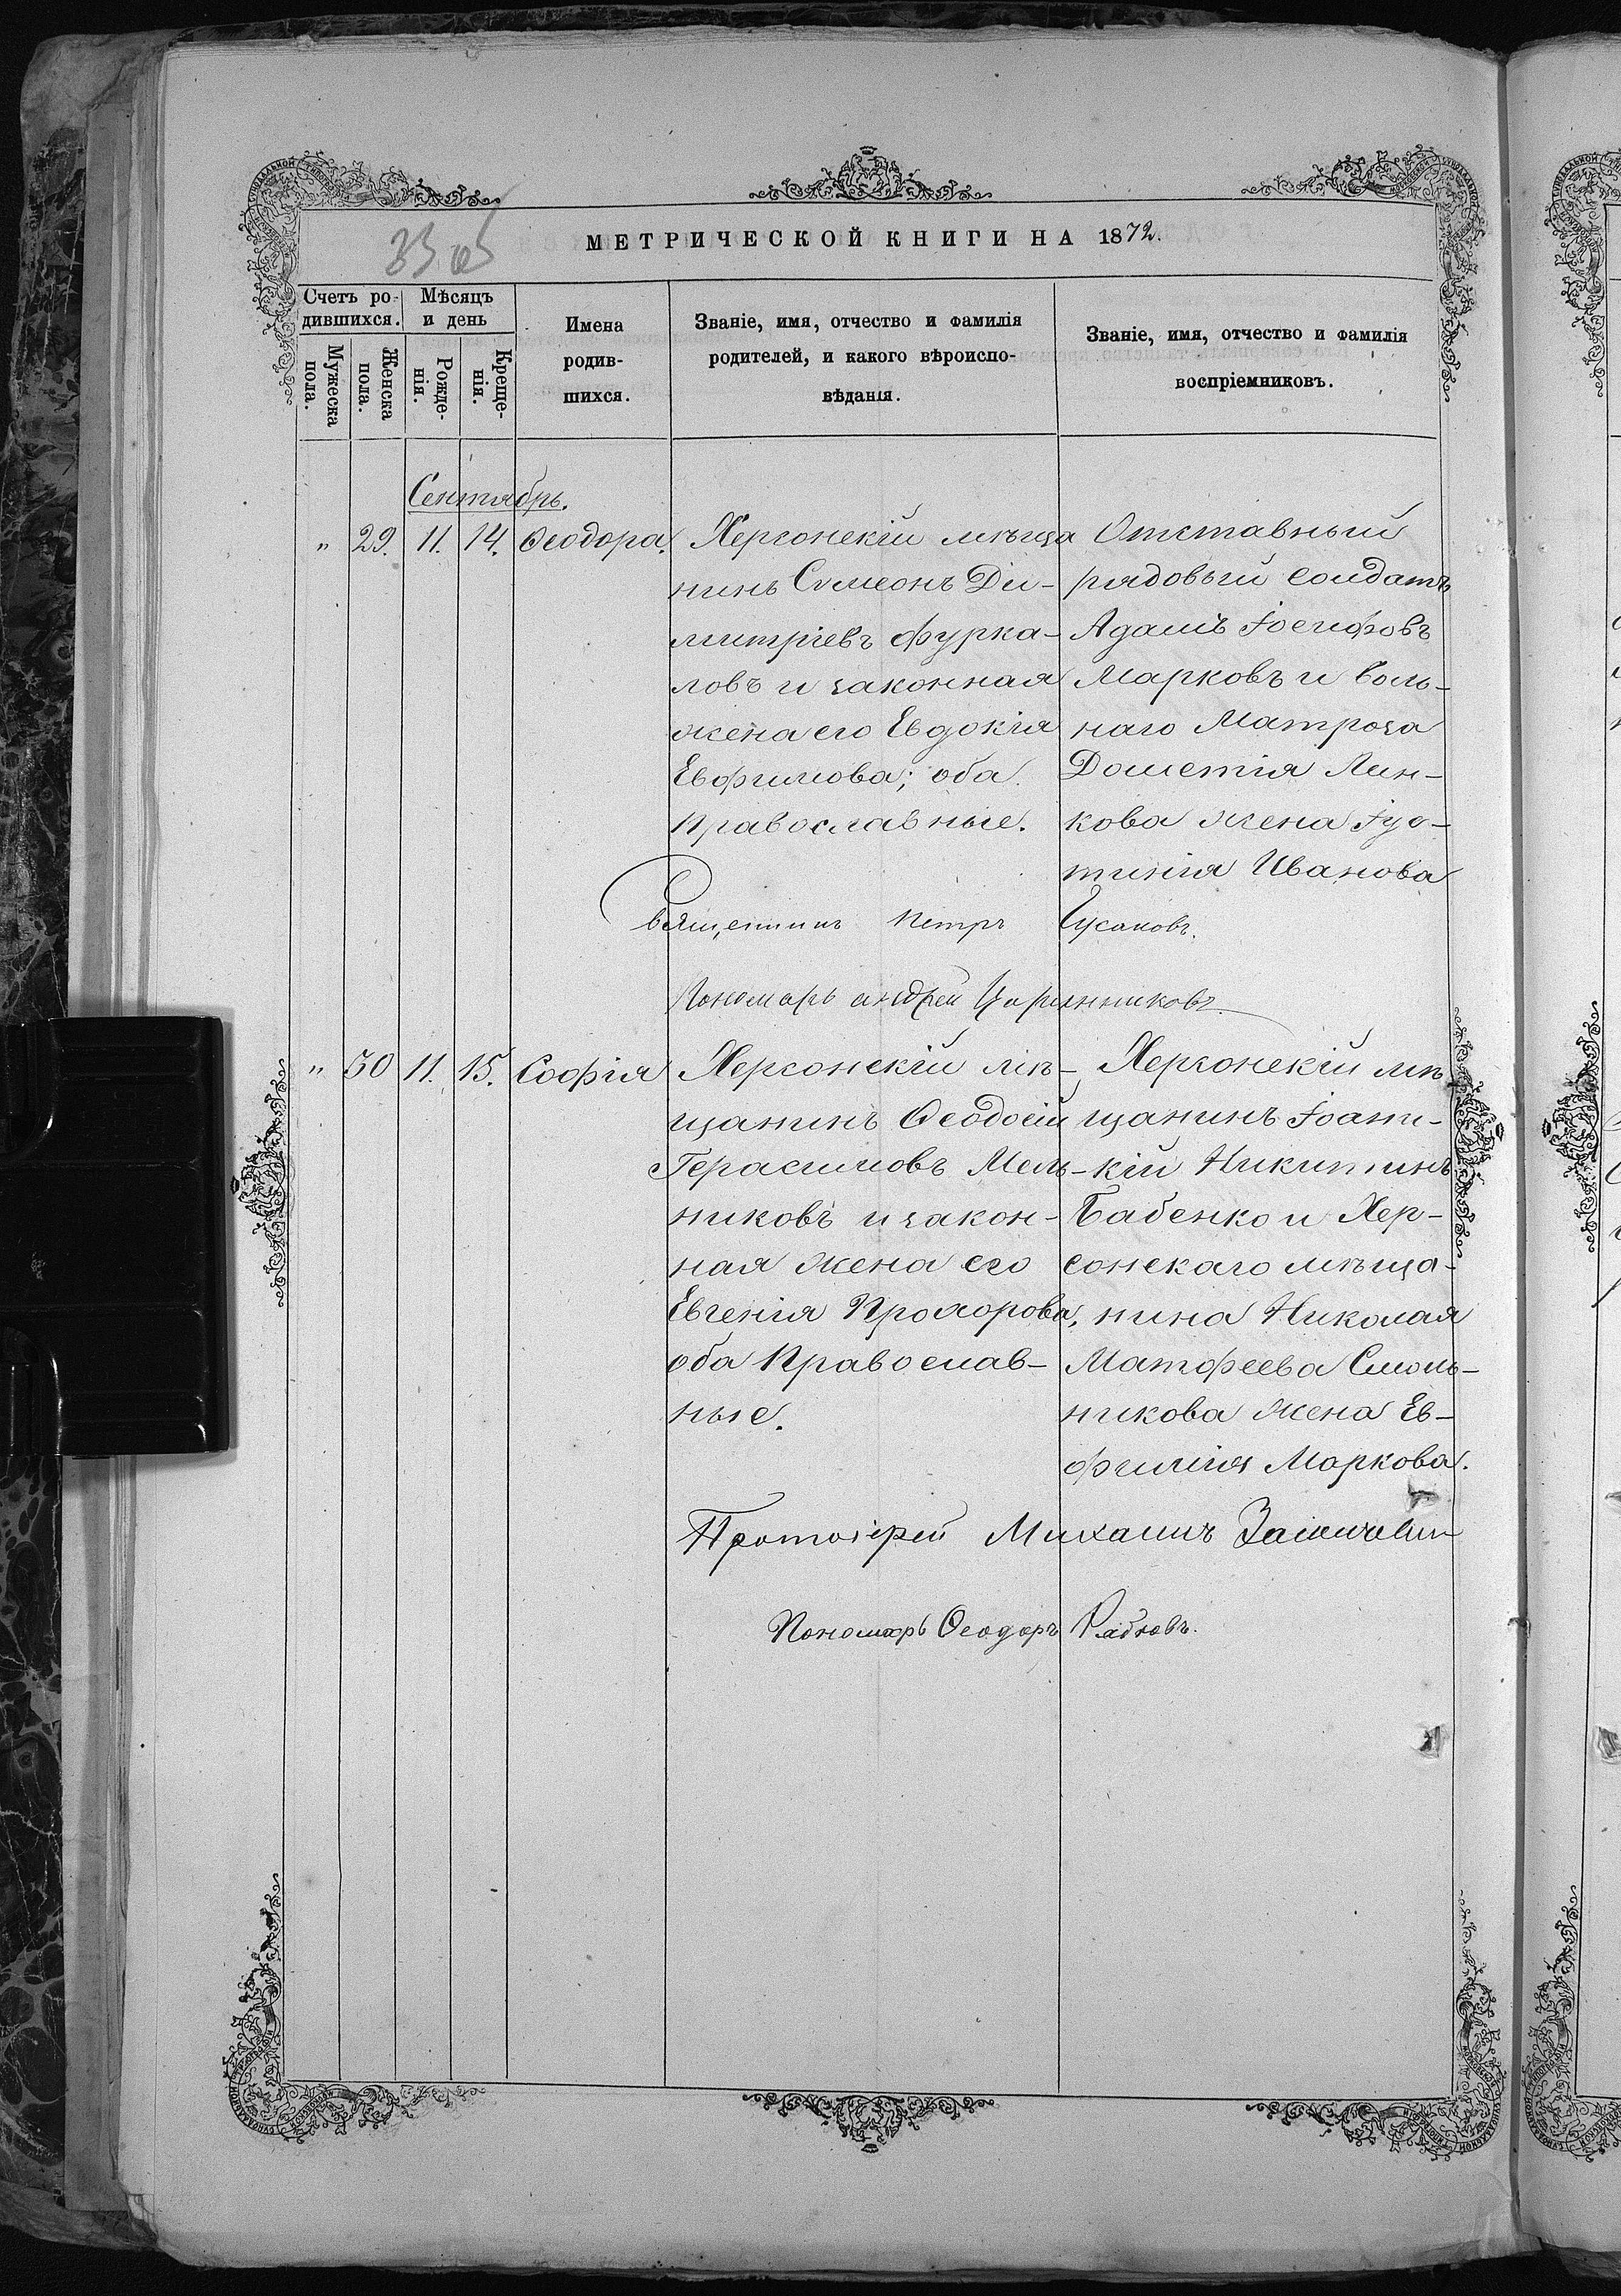 МЕТРИЧЕСКОЙ КНИГИ НА 1872.
Счетъ ро-
дившихся.
Мужеска
пола.
Женска
пола.
Мѣсяцъ
и день
Рожде-
нія.
Креще-
нія.
Имена
родив-
шихся.
Званіе, имя, отчество и фамилія
родителей, и какого вѣроиспо-
вѣданія.
Званіе, имя, отчество и фамилія
воспріемниковъ.
Сентябрь.
" 29. 11. 14. Ѳеодора.
Херсонскій мѣща
нинъ Сѵмеонъ Ди-
митріевъ Фурка-
ловъ и законная
жена его Евдокія
Евфимова; оба
Православные.
Отставный
рядовый солдатъ
Адамъ Іосифовъ
Марковъ и воль-
наго Матроза
Дометія Лин-
кова жена Іус-
тинія Иванова
Священникъ Петръ Гусаковъ.
Пономарь Андрей
" 30 11. 15. Софія
Херсонскій мѣ-
щанинъ Ѳеодосій
Герасимовъ Мель-
никовъ и закон-
ная жена его
Евгенія Прохорова,
оба Православ-
ные.
Херсонскій мѣ
щанинъ Іоани-
кій Никитинъ
Бабенко и Хер-
сонскаго мѣща-
нина Николая
Матфеева Смоль-
никова жена Ев-
фимія Маркова.
Протоіерей Михаилъ
Пономарь Ѳеодоръ Рябковъ.